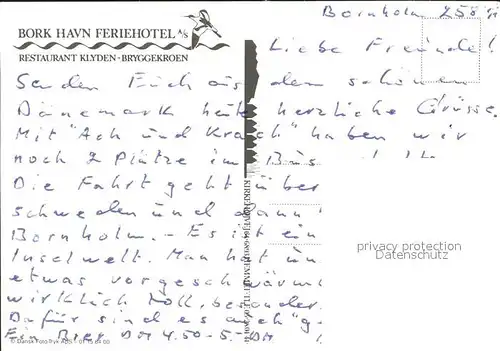 BORK HAVN FERIEHOTEL A/S
RESTAURANT KLYDEN - BRYGGEKROEN
Bornholm 25.8.
Liebe Freunde!
Senden Euch aus dem schönen
Dänemark heute herzliche Grüsse.
Mit "Ach und Krach" haben wir
noch 2 Plätze im Bus
Die Fahrt geht über
schweden und dann
Bornholm. - Es ist ein
Inselwelt. Man hat un
etwas vorgeschwärm
wirklich toll, besonder
Dafür sind es auch "g
Ein Bier DM 4.50 - 5. DM
privacy protection
© Dansk FotoTryk ApS